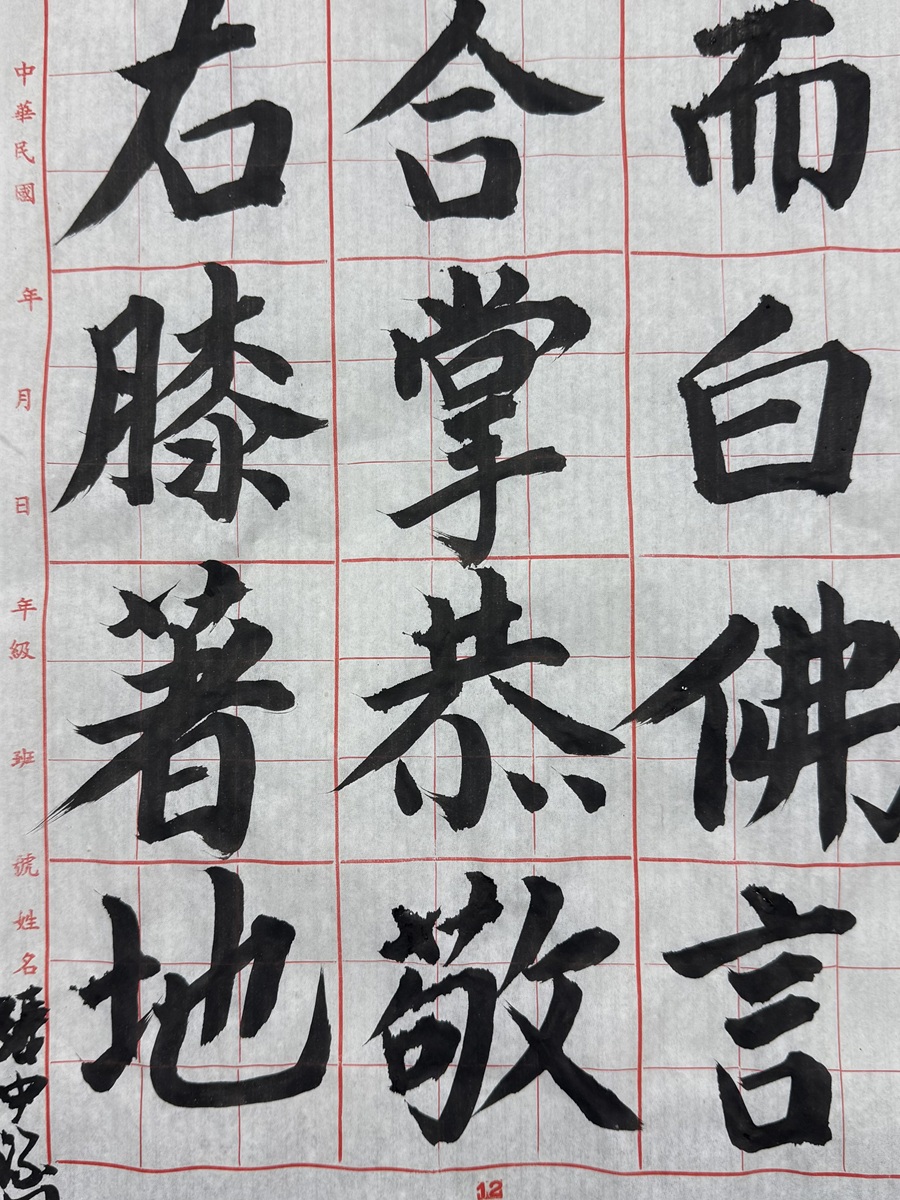 右膝著地
合掌恭敬
而白佛言
中華民國 年 月 日 年級 班 號 姓名
12